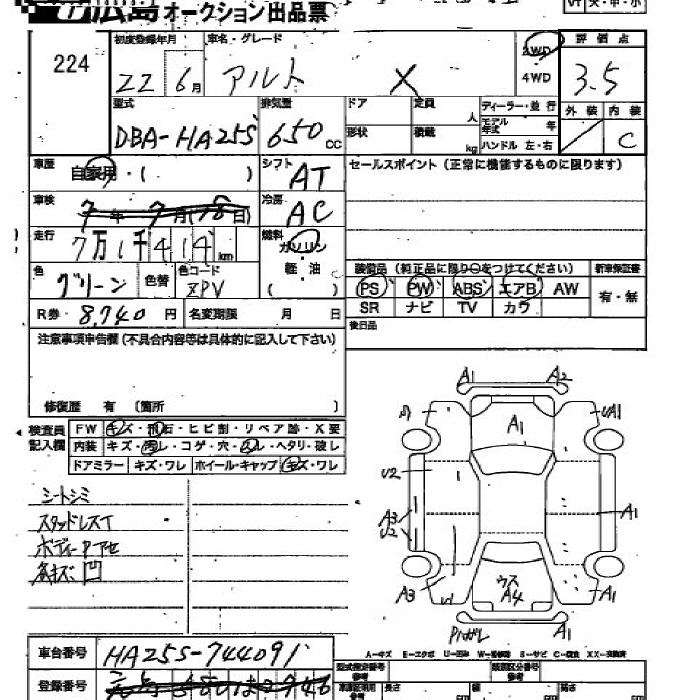 広島オークション出品票
224
初度登録年月
22 6月
車名・グレード
アルト X
2WD
4WD
評価点
3.5
外装 内装
C
型式
DBA-HA25S
排気量
650 CC
ドア
定員
人
形状
積載
kg
ディーラー・並行
モデル年式 年
ハンドル 左・右
車歴
自家用・( )
シフト
AT
セールスポイント(正常に機能するものに限ります)
車検
7年 7月(18日)
冷房
AC
走行
7万1千414km
燃料
ガソリン
軽油
( )
色
グリーン
色替
色コード
ZPV
装備品(純正品に限り○をつけてください)
新車保証書
PS PW ABS エアB AW
有・無
SR ナビ TV カワ
R券・8,740円
名変期限 月 日
後日品
注意事項申告欄(不具合内容等は具体的に記入して下さい)
修復歴 有 〔箇所 〕
検査員記入欄
FW キズ・飛石・ヒビ割・リペア跡・X要
内装 キズ・汚レ・コゲ・穴・スレ・ヘタリ・破レ
ドアミラー キズ・ワレ ホイール・キャップ キズ・ワレ
シートシミ
スタッドレスT
ボディーPアセ
各キズ凹
A1 A2
A1
UA1
U2
A3
U2
A1
A3
ウス
A4
A1
Pハガレ
A1
A-キズ E-エクボ U-凹み W-補修跡 S-サビ C-腐食 XX-交換済
車台番号
HA25S-744091
登録番号
型式指定番号
参考
類別区分番号
参考
長さ cm
幅 cm
高さ cm